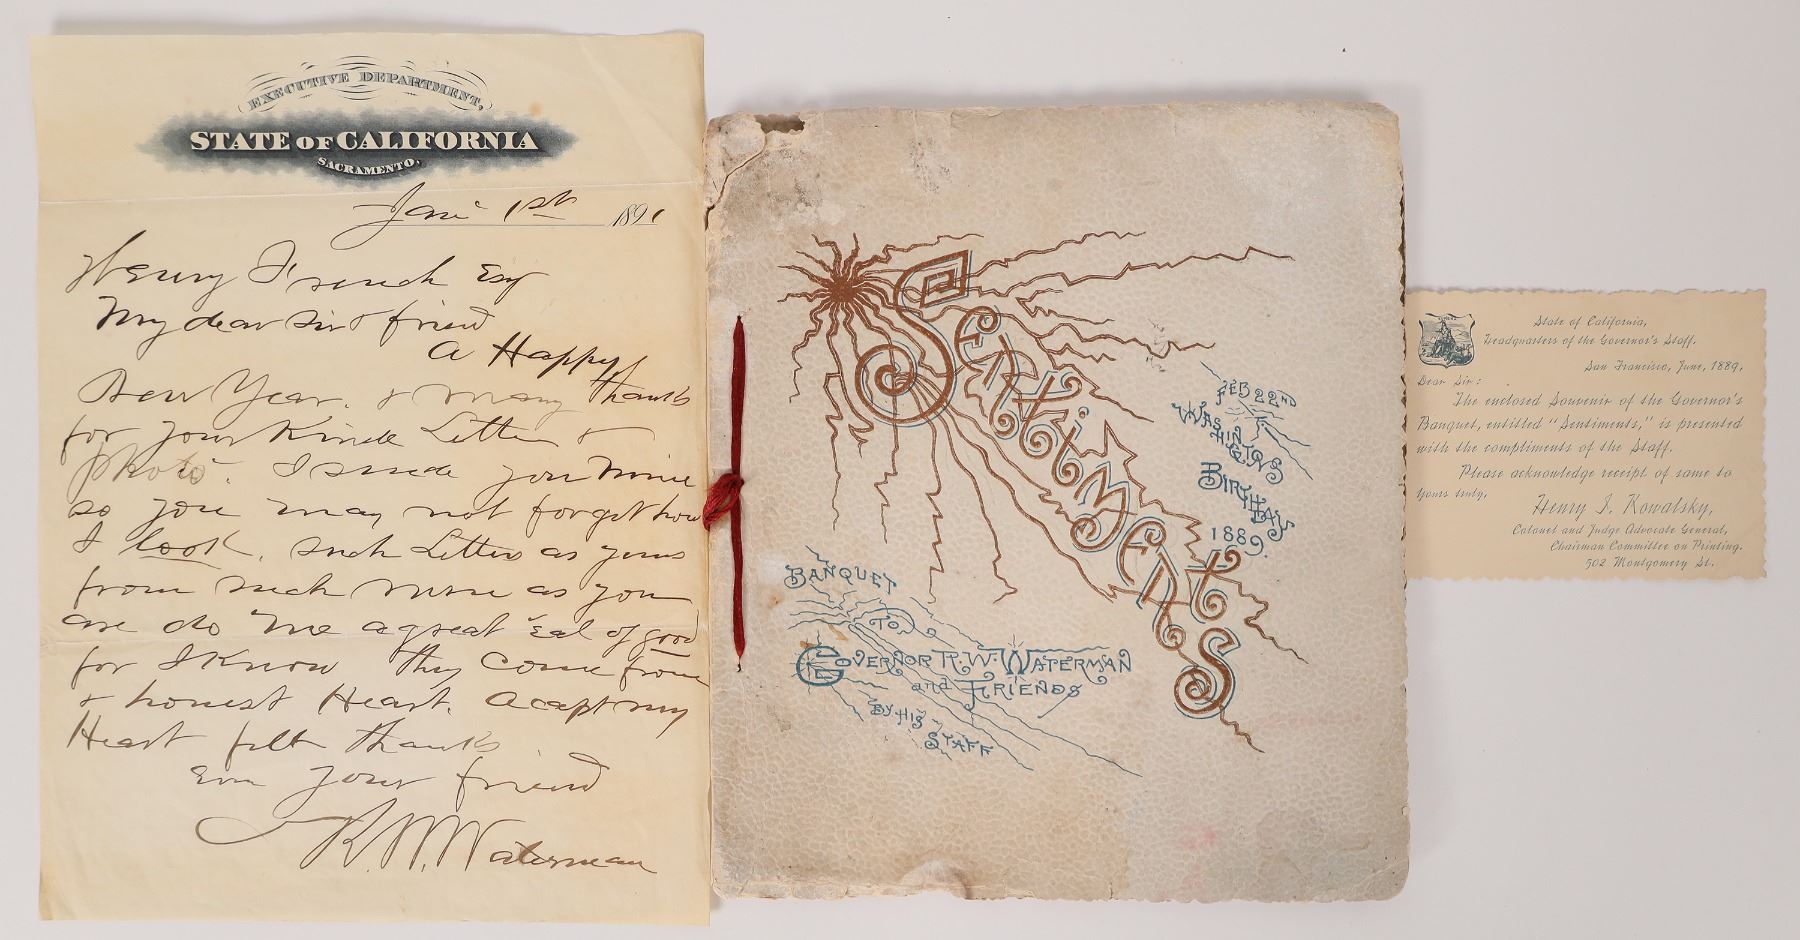 EXECUTIVE DEPARTMENT,
STATE OF CALIFORNIA
SACRAMENTO.
Jan 1st 1891
Henry French Esq
My dear Sir & friend
A Happy
New Year. & many thanks
for your Kind Letter &
photo. I send you mine
so you may not forget how
I look. Such Letters as yours
from such men as you
are do me a great eal of good
for I Know they come from
& honest Heart. Accept my
Heart felt thanks
Ever your friend
R. W. Waterman
SENTIMENTS
FEB 22ND
WASHINGTONS
BIRTHDAY
1889.
BANQUET
TO
GOVERNOR R. W. WATERMAN
and FRIENDS
BY HIS
STAFF
State of California,
Headquarters of the Governor's Staff.
San Francisco, June, 1889.
Dear Sir:
The enclosed Souvenir of the Governor's
Banquet, entitled "Sentiments," is presented
with the compliments of the Staff.
Please acknowledge receipt of same to
Yours truly,
Henry I. Kowalsky,
Colonel and Judge Advocate General,
Chairman Committee on Printing.
502 Montgomery St.